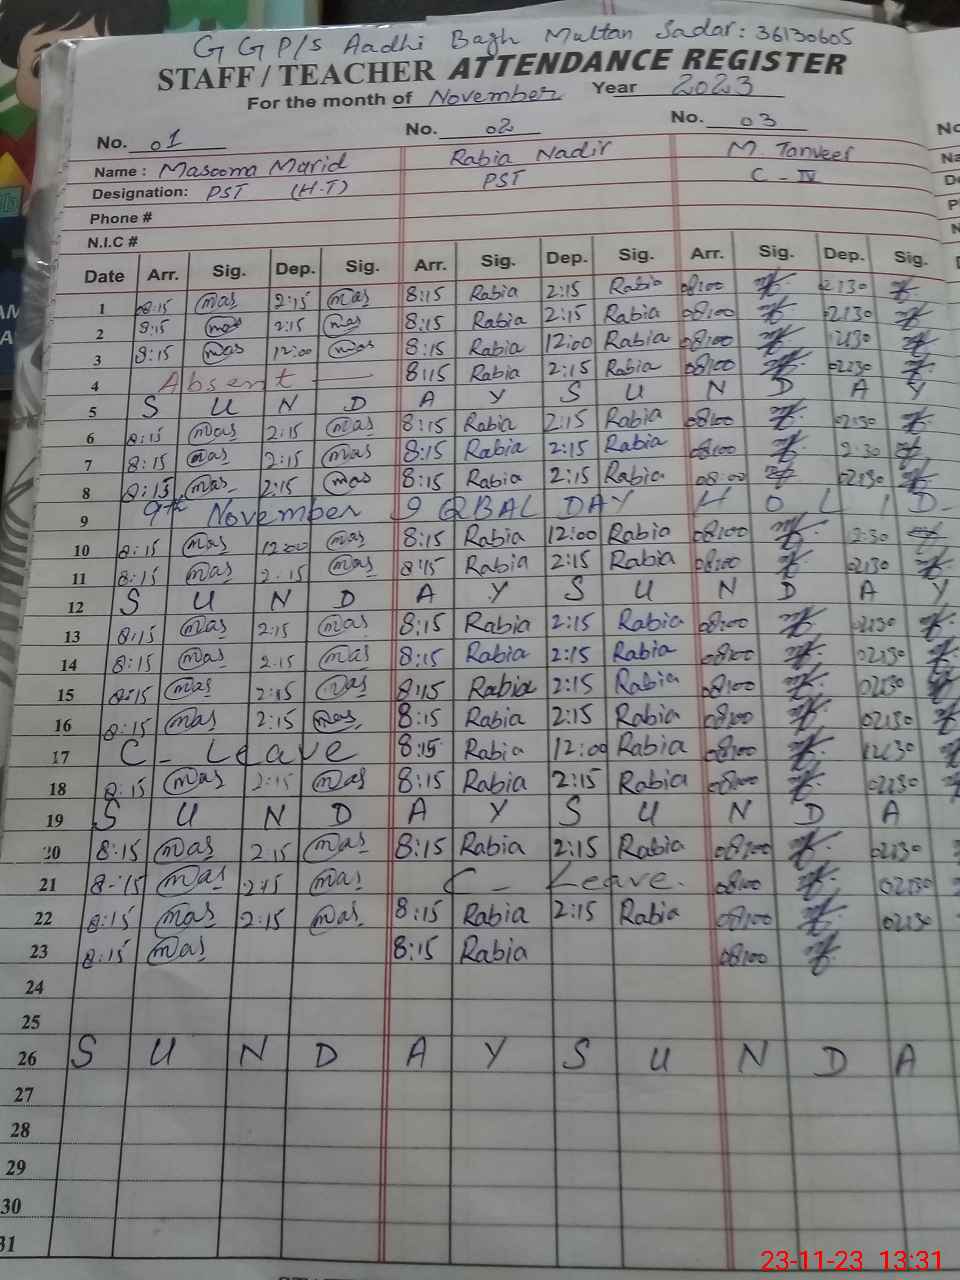 G G P/S Aadhi Bagh Multan Sadar: 36130605
STAFF / TEACHER ATTENDANCE REGISTER
For the month of November Year 2023
No. 01 No. 02 No. 03
Name : Masooma Marid Rabia Nadir M. Tanveer
Designation: PST (H-T) PST C - IV
Phone #
N.I.C #
Date Arr. Sig. Dep. Sig. Arr. Sig. Dep. Sig. Arr. Sig. Dep. Sig.
1 8:15 mas 2:15 mas 8:15 Rabia 2:15 Rabia 08:00 02:30
2 8:15 mas 2:15 mas 8:15 Rabia 2:15 Rabia 08:00 02:30
3 8:15 mas 12:00 mas 8:15 Rabia 12:00 Rabia 08:00
4 Absent 8:15 Rabia 2:15 Rabia 08:00 02:30
5 S U N D A Y S U N D A Y
6 8:15 mas 2:15 mas 8:15 Rabia 2:15 Rabia 08:00 02:30
7 8:15 mas 2:15 mas 8:15 Rabia 2:15 Rabia 08:00 2:30
8 8:15 mas 2:15 mas 8:15 Rabia 2:15 Rabia 08:00 02:30
9 9th November 9 QBAL DAY H O L I D
10 8:15 mas 12:00 mas 8:15 Rabia 12:00 Rabia 08:00 2:30
11 8:15 mas 2:15 mas 8:15 Rabia 2:15 Rabia 08:00 02:30
12 S U N D A Y S U N D A Y
13 8:15 mas 2:15 mas 8:15 Rabia 2:15 Rabia 08:00 02:30
14 8:15 mas 2:15 mas 8:15 Rabia 2:15 Rabia 08:00 02:30
15 8:15 mas 2:15 mas 8:15 Rabia 2:15 Rabia 08:00 02:30
16 8:15 mas 2:15 mas 8:15 Rabia 2:15 Rabia 08:00 02:30
17 C - Leave 8:15 Rabia 12:00 Rabia 08:00 12:30
18 8:15 mas 2:15 mas 8:15 Rabia 2:15 Rabia 08:00 02:30
19 S U N D A Y S U N D A
20 8:15 mas 2:15 mas 8:15 Rabia 2:15 Rabia 08:00 02:30
21 8:15 mas 2:15 mas C - Leave. 08:00 02:30
22 8:15 mas 2:15 mas 8:15 Rabia 2:15 Rabia 08:00 02:30
23 8:15 mas 8:15 Rabia 08:00
24
25
26 S U N D A Y S U N D A
27
28
29
30
31
23-11-23 13:31